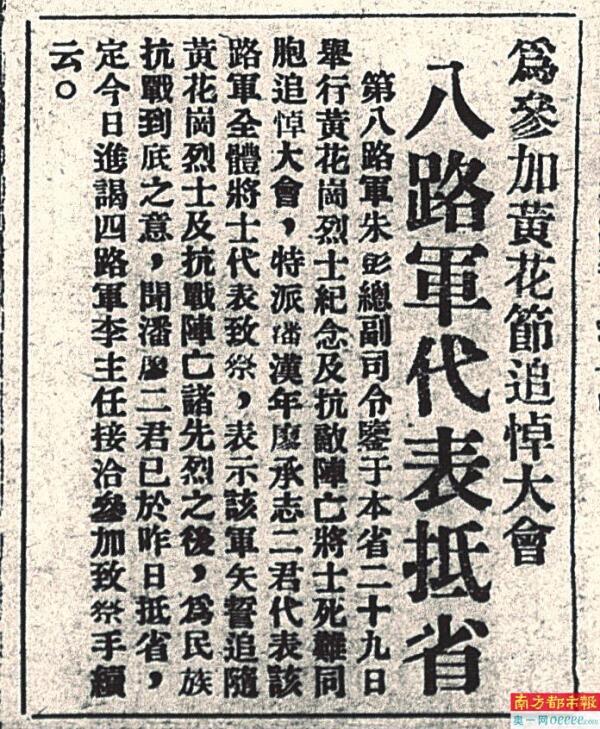 為參加黃花節追悼大會
八路軍代表抵省
第八路軍朱彭總副司令鑒于本省二十九日
舉行黃花崗烈士紀念及抗敵陣亡將士死難同
胞追悼大會，特派潘漢年廖承志二君代表該
路軍全體將士代表致祭，表示該軍矢誓追隨
黃花崗烈士及抗戰陣亡諸先烈之後，為民族
抗戰到底之意，聞潘廖二君已於昨日抵省，
定今日進謁四路軍李主任接洽參加致祭手續
云。
南方都市報
奥一网oeeee.com